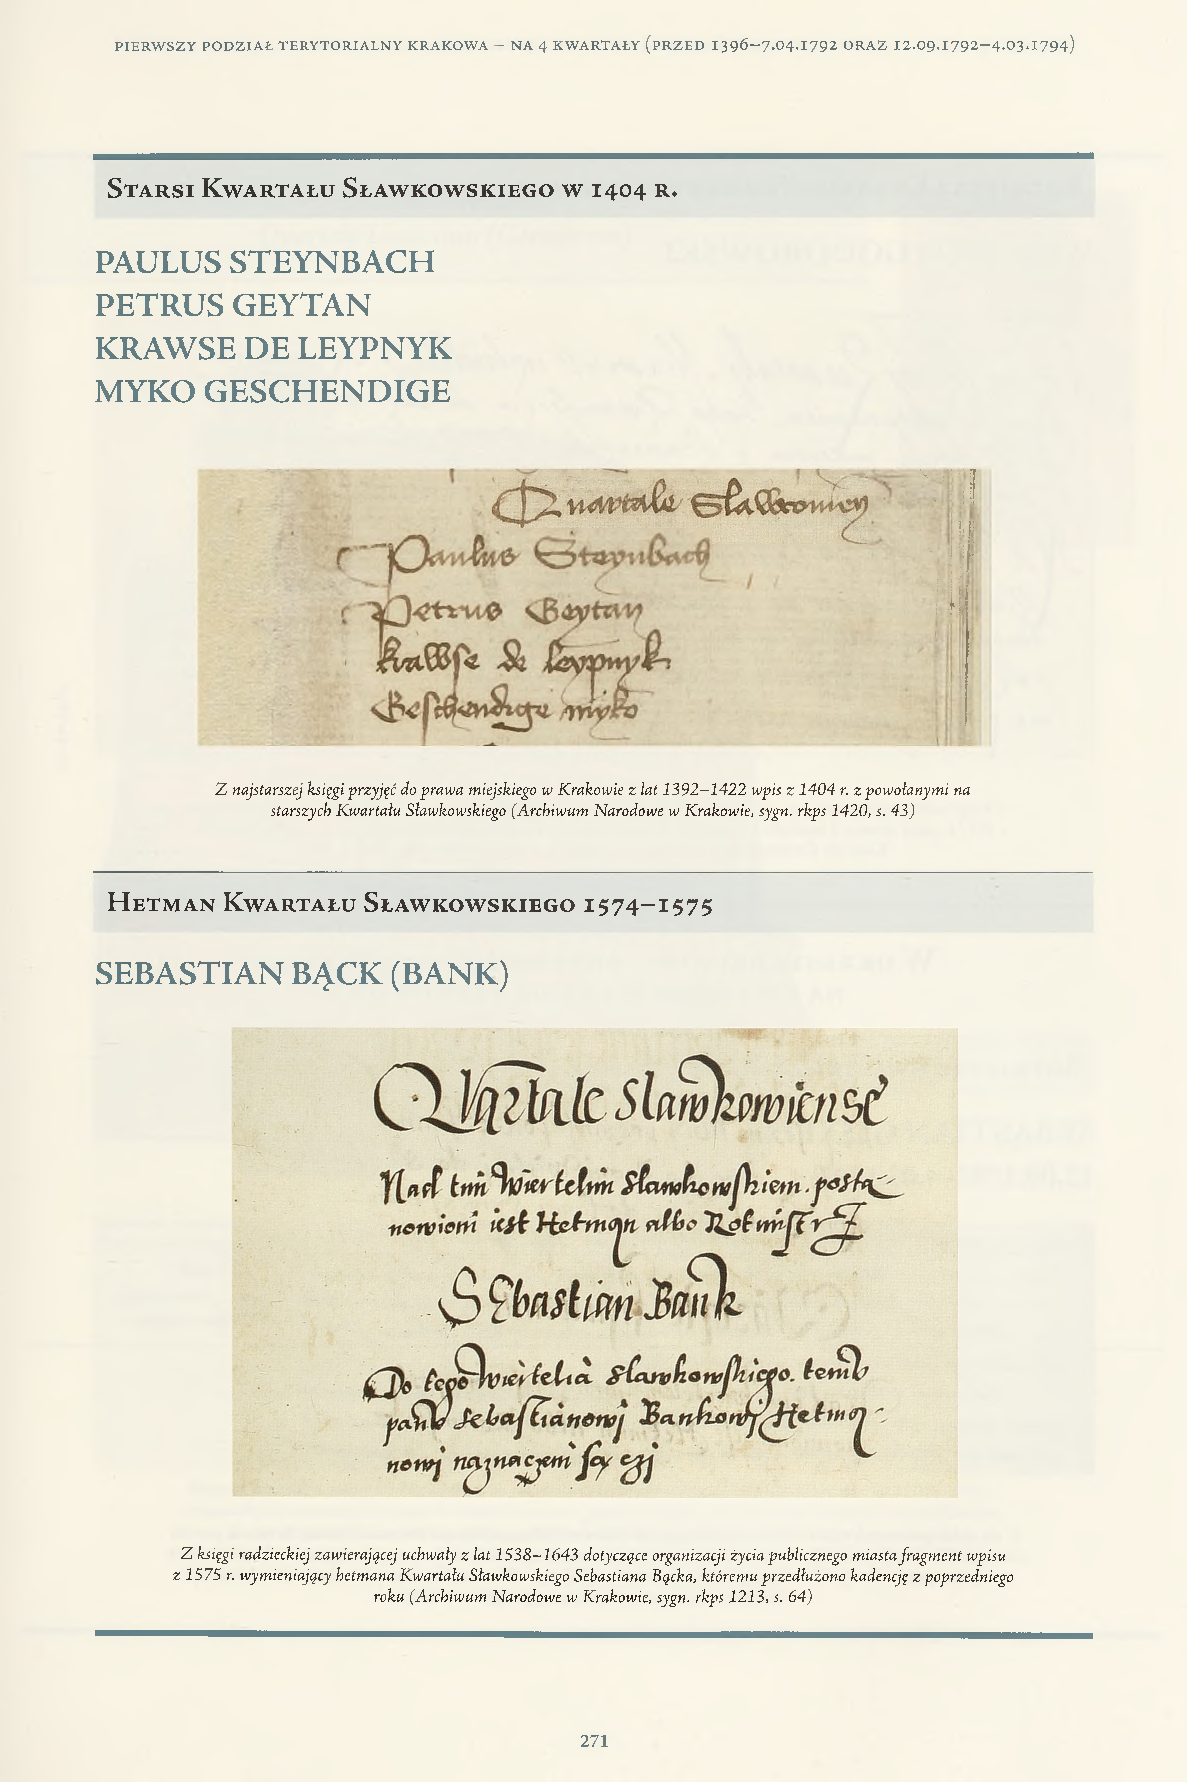 PIERWSZY PODZIAŁ TERYTORIALNY KRAKOWA – NA 4 KWARTAŁY (PRZED 1396–7.04.1792 ORAZ 12.09.1792–4.03.1794)
STARSI KWARTAŁU SŁAWKOWSKIEGO W 1404 R.
PAULUS STEYNBACH
PETRUS GEYTAN
KRAWSE DE LEYPNYK
MYKO GESCHENDIGE
Quartale Slawcomien
Paulus Steynbach
Petrus Geytan
krawse de leypnyk
Geschendige myko
Z najstarszej księgi przyjęć do prawa miejskiego w Krakowie z lat 1392–1422 wpis z 1404 r. z powołanymi na
starszych Kwartału Sławkowskiego (Archiwum Narodowe w Krakowie, sygn. rkps 1420, s. 43)
HETMAN KWARTAŁU SŁAWKOWSKIEGO 1574–1575
SEBASTIAN BĄCK (BANK)
Qvartale Slawkowiense
Nad tim Wiertelim Slawkowskiem. posta-
nowioni iest Hetman albo Rotmistrz
SEbastian Bank
Do tego Wiertelia Slawkowskiego. temv
panv Sebastianowj Bankowj Hetma-
nowj naznaczeni są czj
Z księgi radzieckiej zawierającej uchwały z lat 1538–1643 dotyczące organizacji życia publicznego miasta fragment wpisu
z 1575 r. wymieniający hetmana Kwartału Sławkowskiego Sebastiana Bącka, któremu przedłużono kadencję z poprzedniego
roku (Archiwum Narodowe w Krakowie, sygn. rkps 1213, s. 64)
271